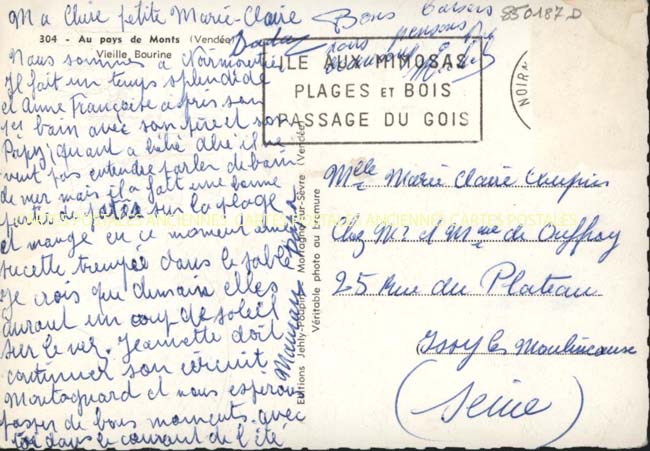 Ma Chère petite Marie-Claire
304 - Au pays de Monts (Vendée)
Vieille Bourine
Nous sommes à Noirmoutier
Il fait un temps splendide
et Anne Françoise a pris son
1er bain avec son père et son
Papy, quant à bébé il ne
veut pas entendre parler de bain
de mer mais il a fait une bonne
partie de sur la plage
et mange en ce moment une
sucette trempée dans le sable
Je crois que demain elles
auront un coup de soleil
sur le nez. Jeannette doit
continuer son circuit
Montagnard et nous espérons
passer de bons moments avec
toi dans le courant de l'été
Bons baisers
nous pensons
850187.D
ILE AUX MIMOSAS
PLAGES ET BOIS
PASSAGE DU GOIS
NOIRM
Editions Jehly-Poupin - Mortagne-sur-Sèvre (Vendée)
Véritable photo au bromure
Mlle Marie Claire
Chez Mr et Mme de
25 Rue du Plateau
Issy les Moulineaux
(Seine)
CARTES POSTALES ANCIENNES